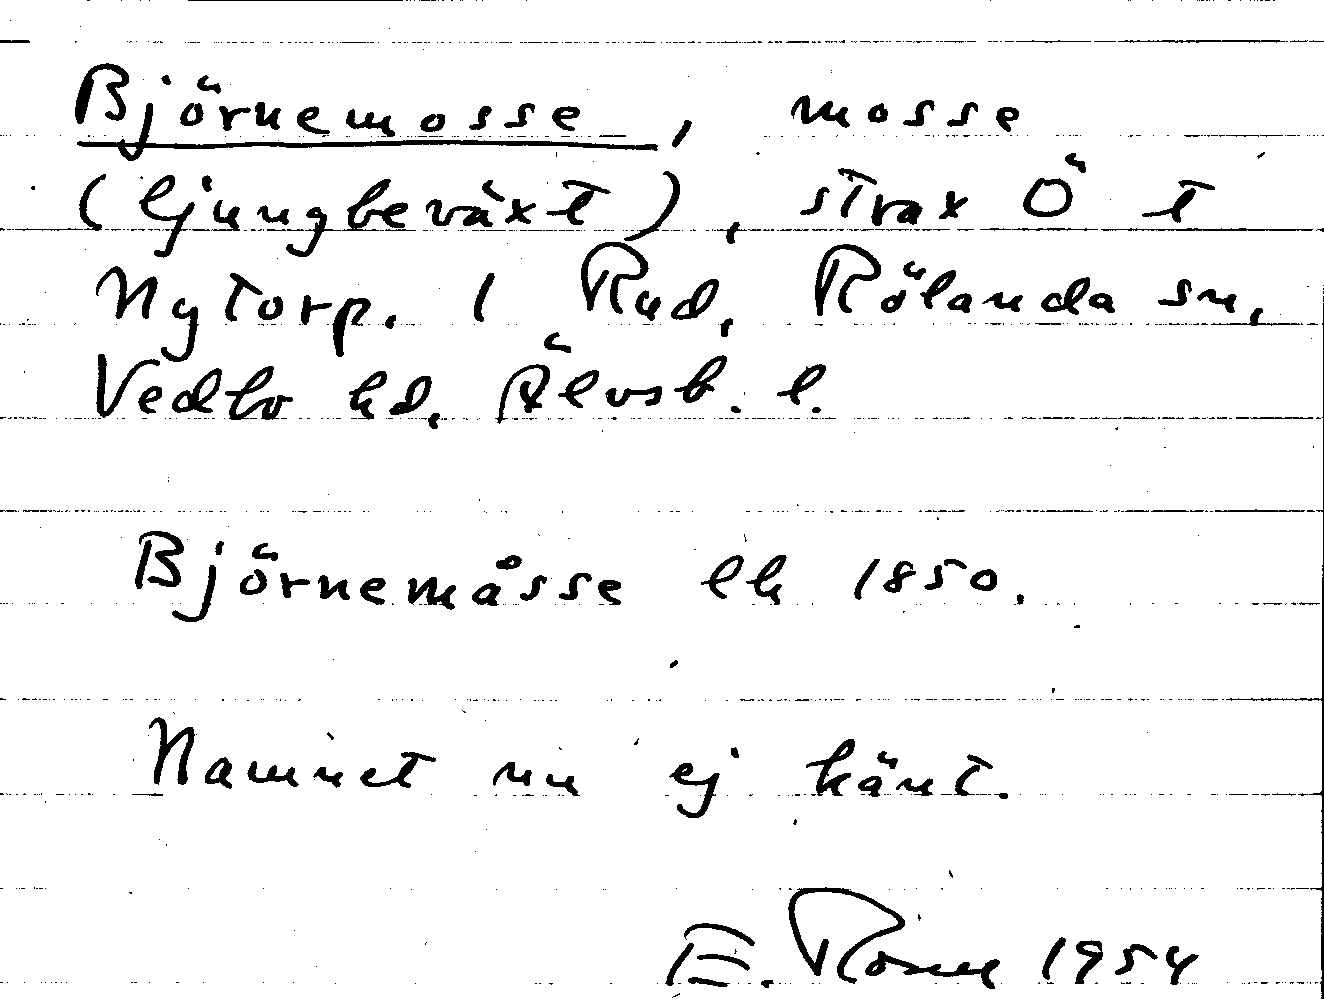 Björnemosse, mosse
(ljungbeväxt), strax Ö t
Nytorp. 1 Rud, Rölanda sn,
Vedbo hd, Älvsb. l.
Björnemåsse ek 1850.
Namnet nu ej känt.
E. 1954